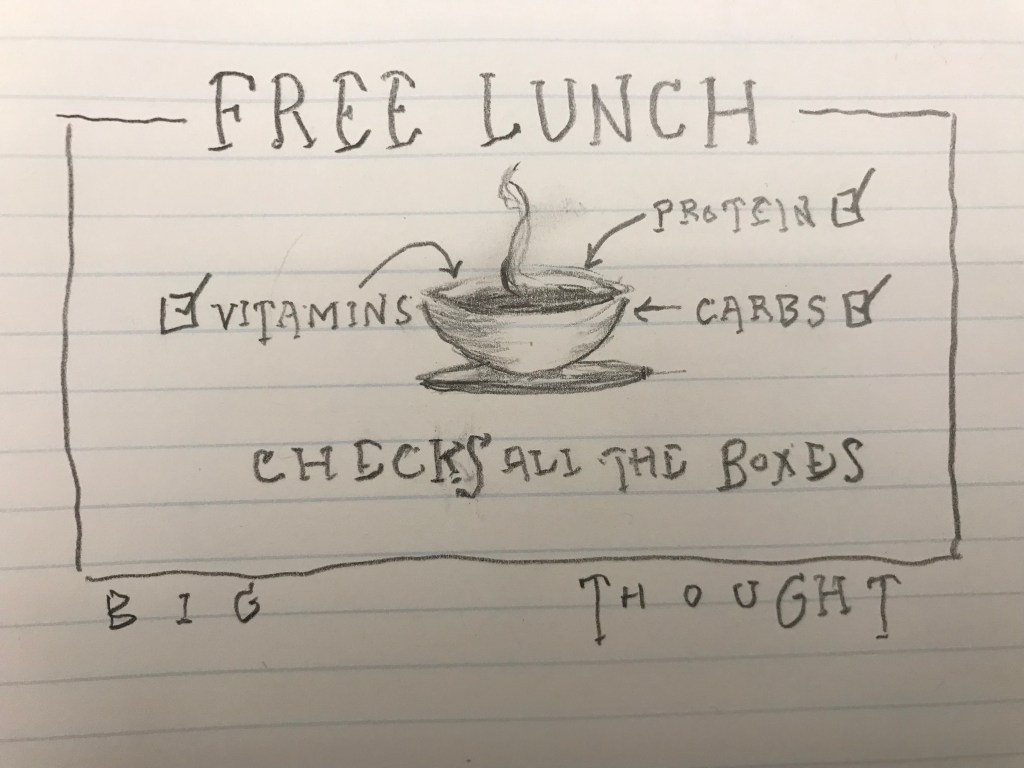 FREE LUNCH
PROTEIN
VITAMINS
CARBS
CHECKS ALL THE BOXES
BIG THOUGHT